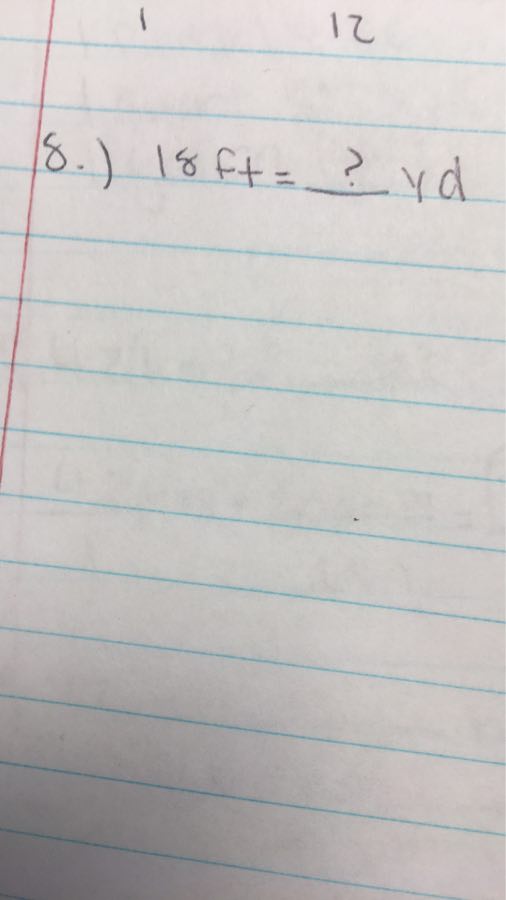 1 12
8.) 18 ft = ? yd